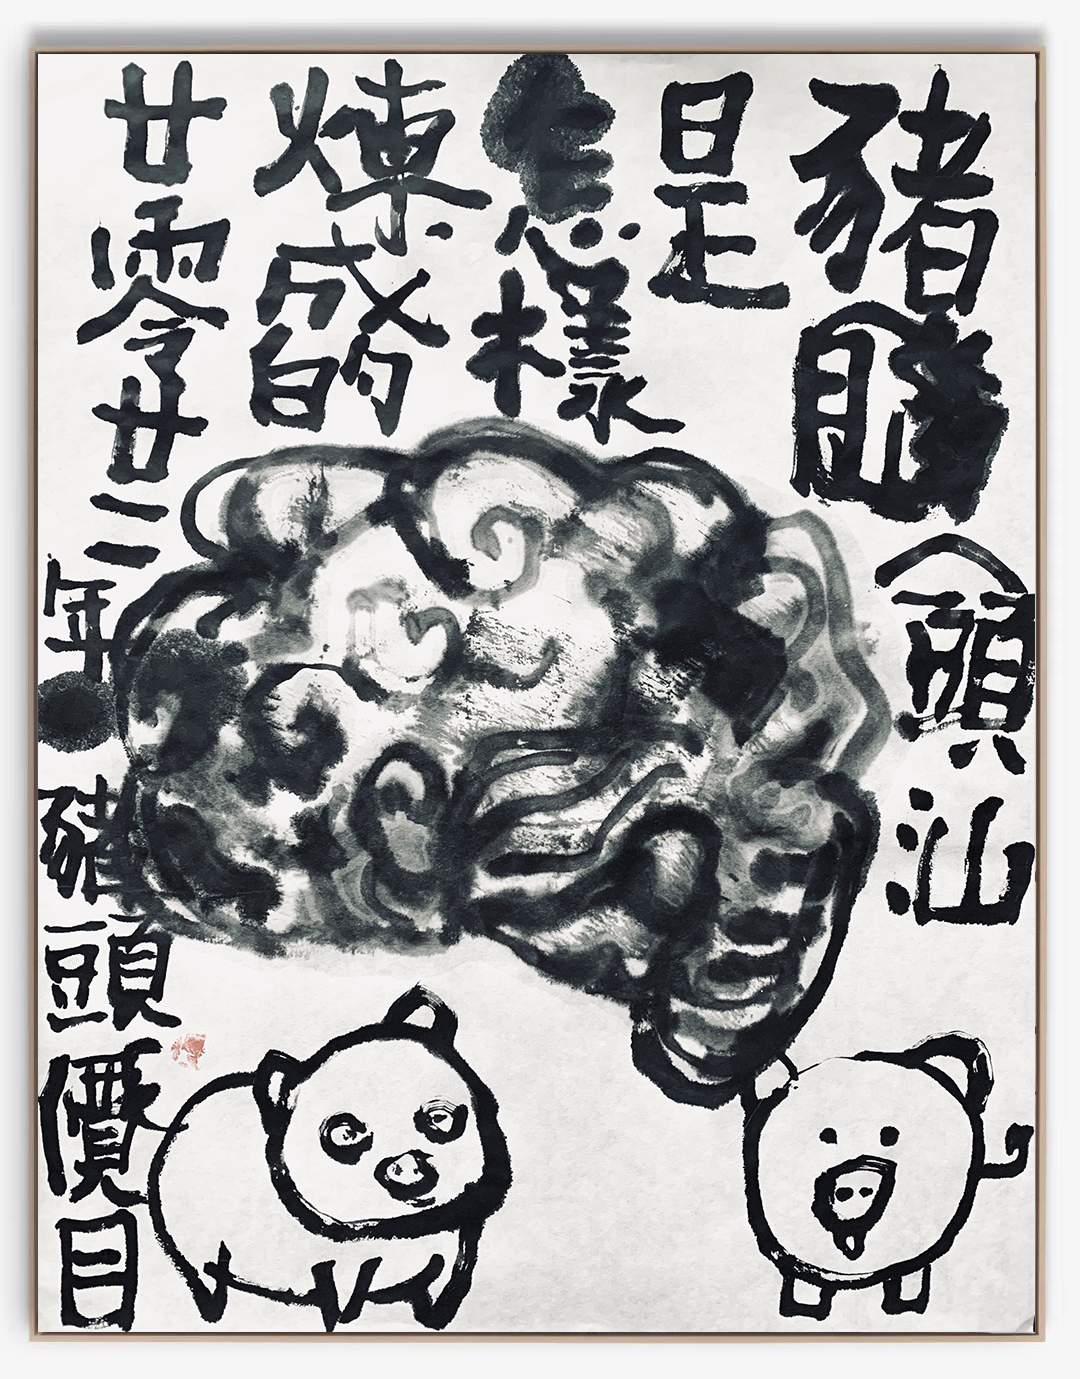 豬腦
頭汕
是
怎樣
煉成的
廿零廿二年
豬頭價目